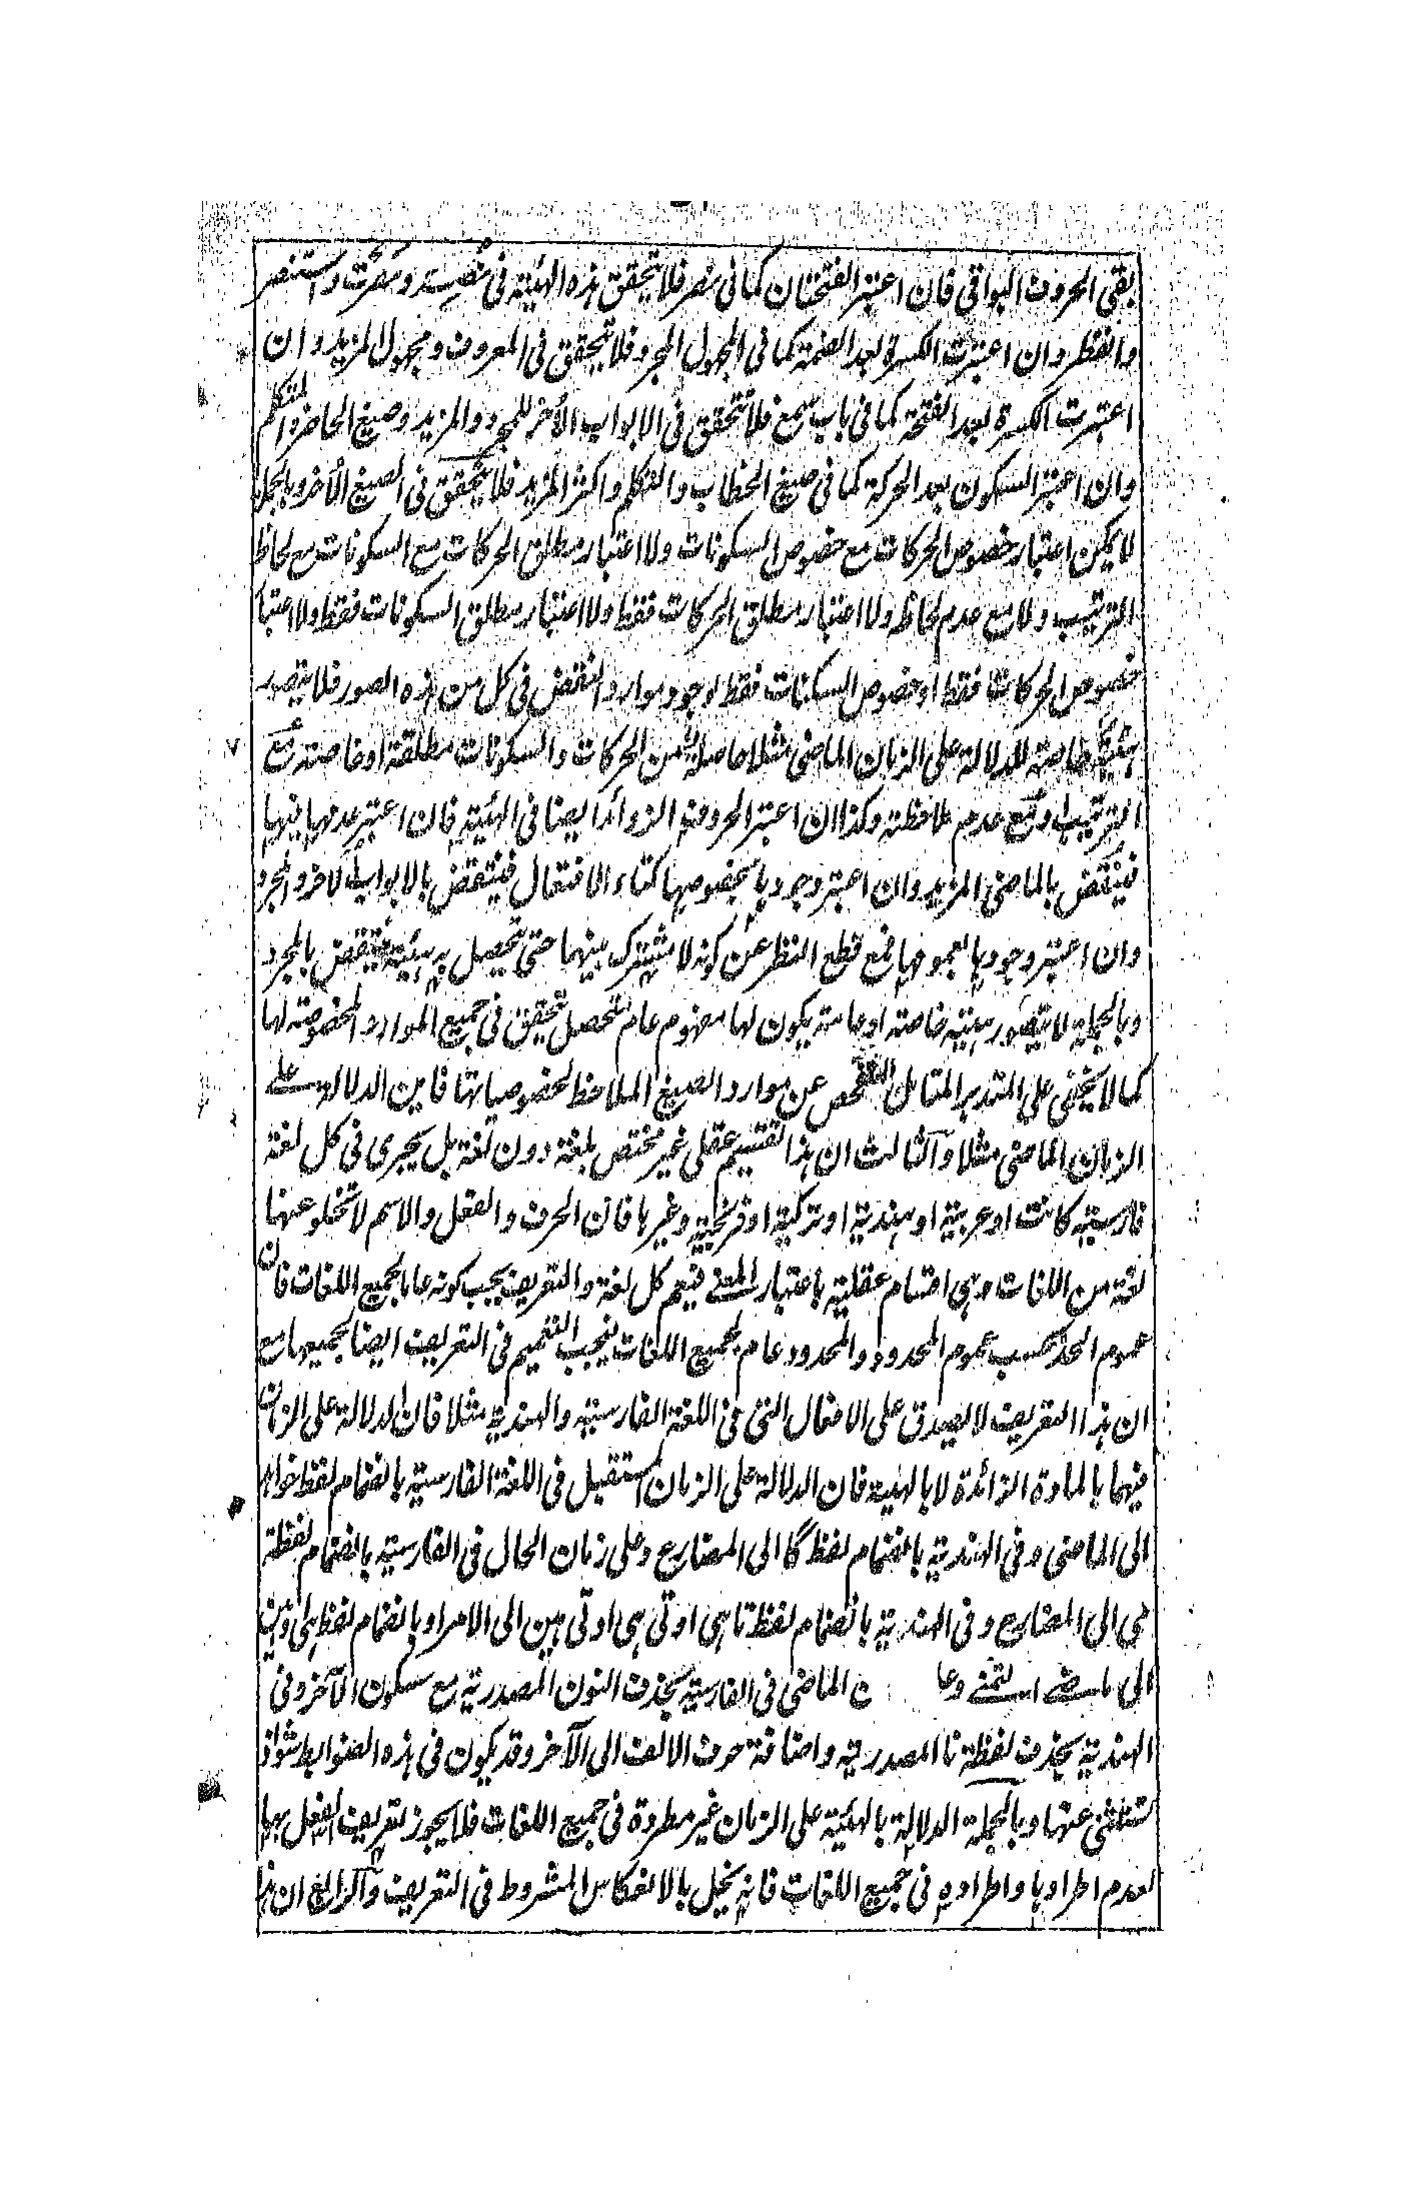 بقى الحروف البواقى فان اعتبر الفتحتان كما فى نصر فلا يتحقق هذه الهيئة فى نصر و نصرت و استنصر
وانفطر وان اعتبرت الكسرة بعد الضمة كما فى المجهول المجرد فلا يتحقق فى المعروف و مجهول المزيد وان
اعتبرت الكسرة بعد الفتحة كما فى باب سمع فلا تتحقق فى الابواب الأخر للمجرد والمزيد وصيغ الحاضر والمتكلم
وان اعتبر السكون بعد الحركة كما فى صيغ الخطاب والتكلم واكثر المزيد فلا يتحقق فى الصيغ الأخر وبالجملة
لا يمكن اعتبار خصوص الحركات مع خصوص السكونات ولا اعتبار مطلق الحركات مع السكونات مع لحاظ
الترتيب ولا مع عدم لحاظه ولا اعتبار مطلق الحركات فقط ولا اعتبار مطلق السكونات فقط ولا اعتبار
خصوص الحركات فقط او خصوص السكنات فقط لوجود موارد النقض فى كل من هذه الصور فلا يتصور
هيئة خاصة للدلالة على الزمان الماضى مثلا حاصلة من الحركات والسكونات مطلقة او خاصة مع
الترتيب او مع عدم ملاحظته وكذا ان اعتبر الحروف الزوائد ايضا فى الهيئة فان اعتبر عدمها فيها
فينتقض بالماضى المزيد وان اعتبر وجودها بخصوصها كتاء الافتعال فينتقض بالابواب الاخر والمجرد
وان اعتبر وجودها بعمومها فمع قطع النظر عن كونه لا مشترك بينهما حتى تحصل به هيئة ينتقض بالمجرد
وبالجملة لا يتصور هيئة خاصة او عامة يكون لها مفهوم عام متحصل تحقق فى جميع الموارد المخصوصة لها
كما لا يخفى على المتدبر المتامل المتفحص عن موارد الصيغ الملاحظ لخصوصياتها فاين الدلالة على
الزمان الماضى مثلا والثالث ان هذا التقسيم عقلى غير مختص بلغة دون لغة بل يجرى فى كل لغة
فارسية كانت او عربية او هندية او تركية او فرنجية وغيرها فان الحرف والفعل والاسم لا تخلو عنها
لغة من اللغات وهى اقسام عقلية باعتبار المعنى فيعم كل لغة والتعريف يجب كونه عاما لجميع اللغات فان
عموم الحد بحسب عموم المحدود والمحدود عام لجميع اللغات فيجب التعميم فى التعريف ايضا لجميعها مع
ان هذا التعريف لا يصدق على الافعال التى فى اللغة الفارسية والهندية مثلا فان الدلالة على الزمان
فيهما بالمادة الزائدة لا بالهيئة فان الدلالة على الزمان المستقبل فى اللغة الفارسية بانضمام لفظ خواهد
الى الماضى وفى الهندية بانضمام لفظ گا الى المضارع وعلى زمان الحال فى الفارسية بانضمام لفظة
مى الى المضارع وفى الهندية بانضمام لفظ تا هى او تى هى او تى هين الى الامر او بانضمام لفظ هى وهين
الى ماضى التمنى و ن الماضى فى الفارسية بحذف النون المصدرية مع سكون الآخر وفى
الهندية بحذف لفظة نا المصدرية و اضافة حرف الالف الى الآخر وقد يكون فى هذه الضوابط شواذ
تستثنى عنها وبالجملة الدلالة بالهيئة على الزمان غير مطردة فى جميع اللغات فلا يجوز تعريف الفعل بها
لعدم اطرادها واطراده فى جميع اللغات فانه يخل بالانعكاس المشروط فى التعريف والرابع ان هذا